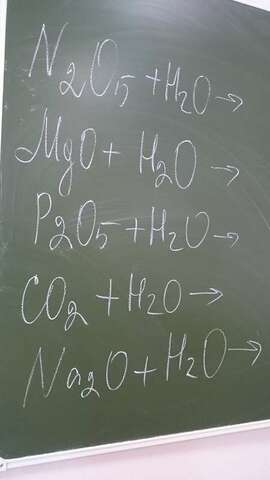 N2O5 + H2O →
MgO + H2O →
P2O5 + H2O →
CO2 + H2O →
Na2O + H2O →